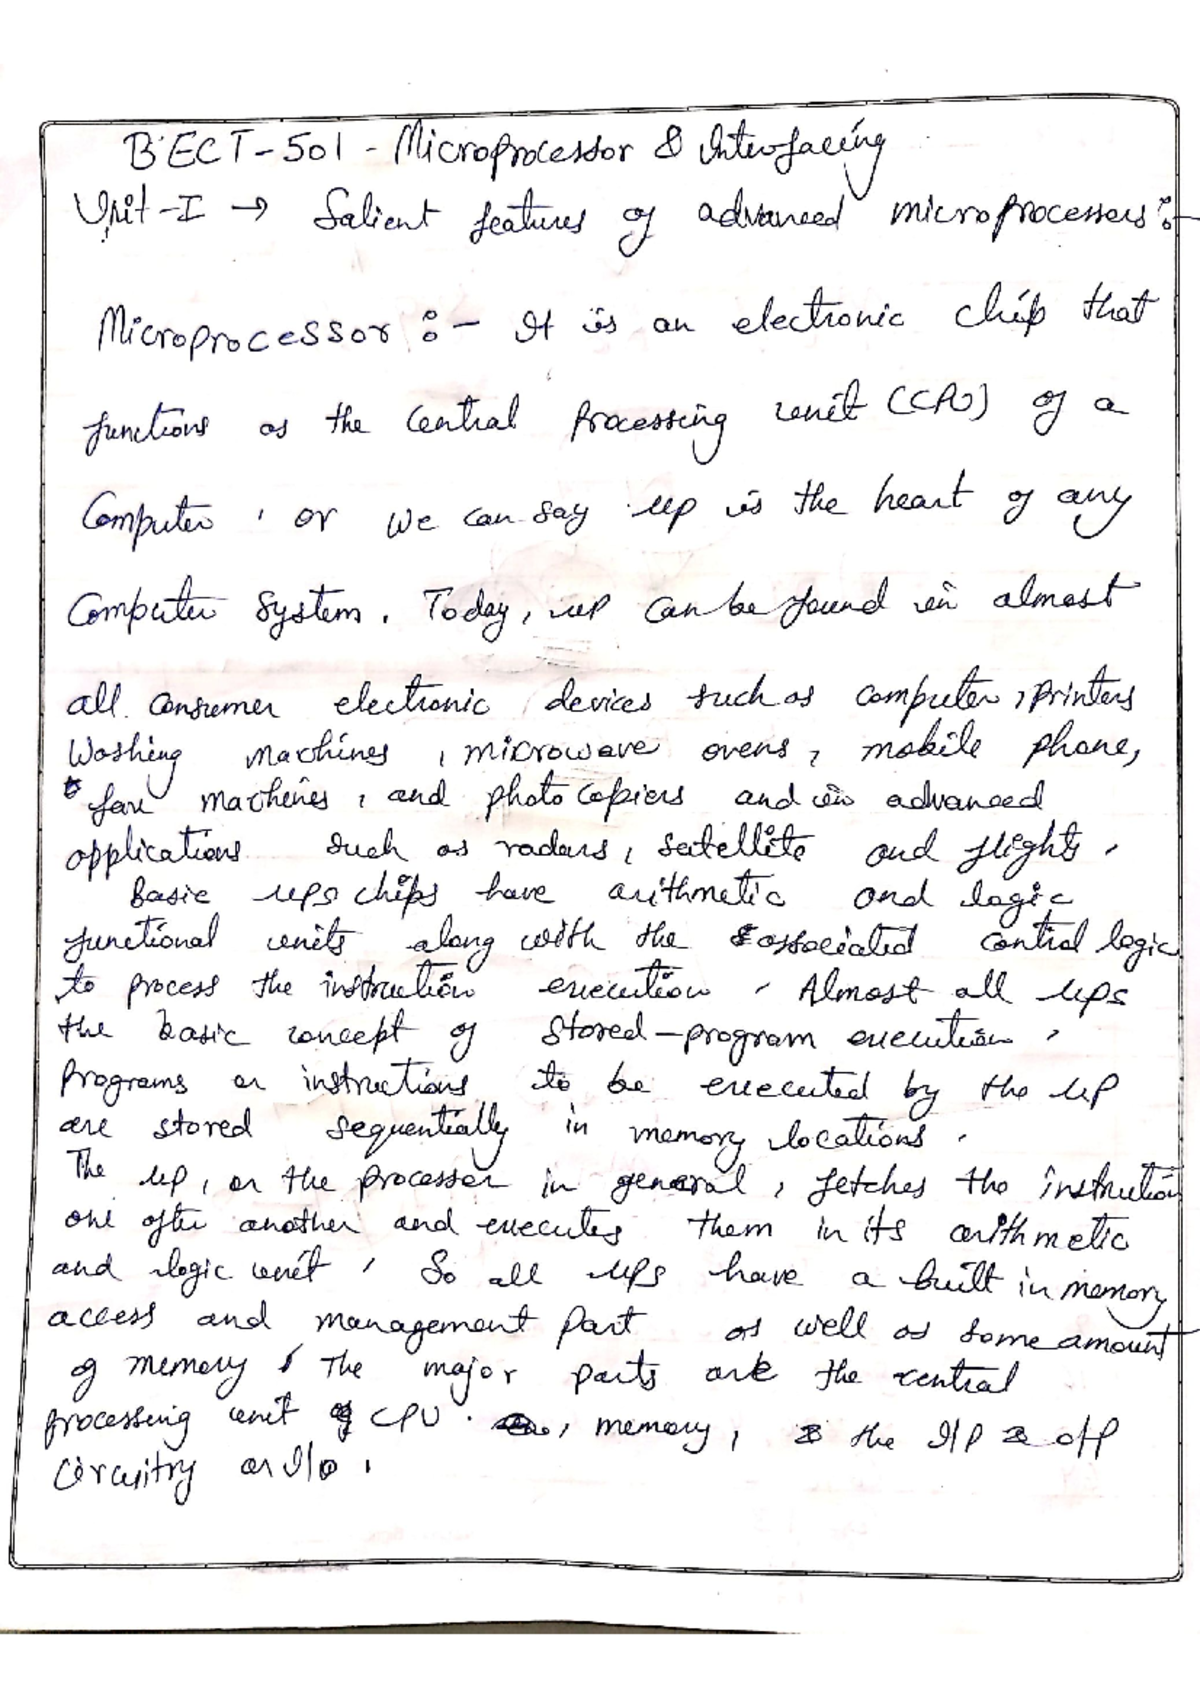 BECT-501 - Microprocessor & Interfacing
Unit-I → Salient features of advanced microprocessers:-
Microprocessor :- It is an electronic chip that
functions as the Central Processing unit (CPU) of a
Computer, or we can say up is the heart of any
Computer System. Today, up can be found in almost
all consumer electronic devices such as computer, printers
Washing machines, microwave ovens, mobile phone,
fax machines, and photocopiers and in advanced
applications such as radars, satellite and flights.
Basic ups chips have arithmetic and logic
functional units along with the associated control logic
to process the instruction execution. Almost all ups
the basic concept of stored-program execution.
Programs or instructions to be executed by the up
are stored sequentially in memory locations.
The up, or the processor in general, fetches the instruction
one after another and executes them in its arithmetic
and logic unit. So all ups have a built in memory
access and management part as well as some amount
of memory. The major parts are the central
processing unit CPU, memory, the I/P & o/p
Circuitry or I/o.